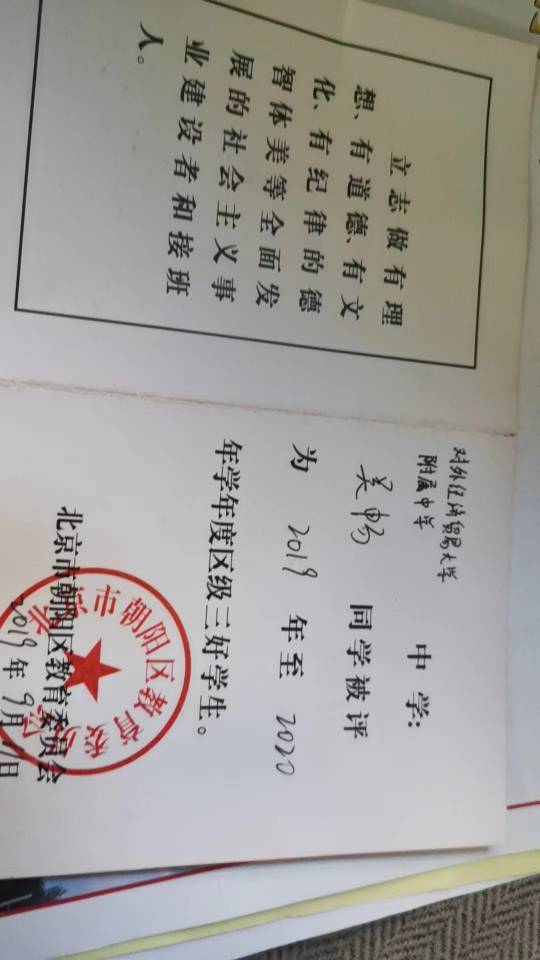 立志做有理
想、有道德、有文
化、有纪律的德
智体美等全面发
展的社会主义事
业建设者和接班
人。
对外经济贸易大学
附属中学
中学:
吴畅 同学被评
为 2019 年至 2020
年学年度区级三好学生。
北京市朝阳区教育委员会
2019年9月
北京市朝阳区教育委员会